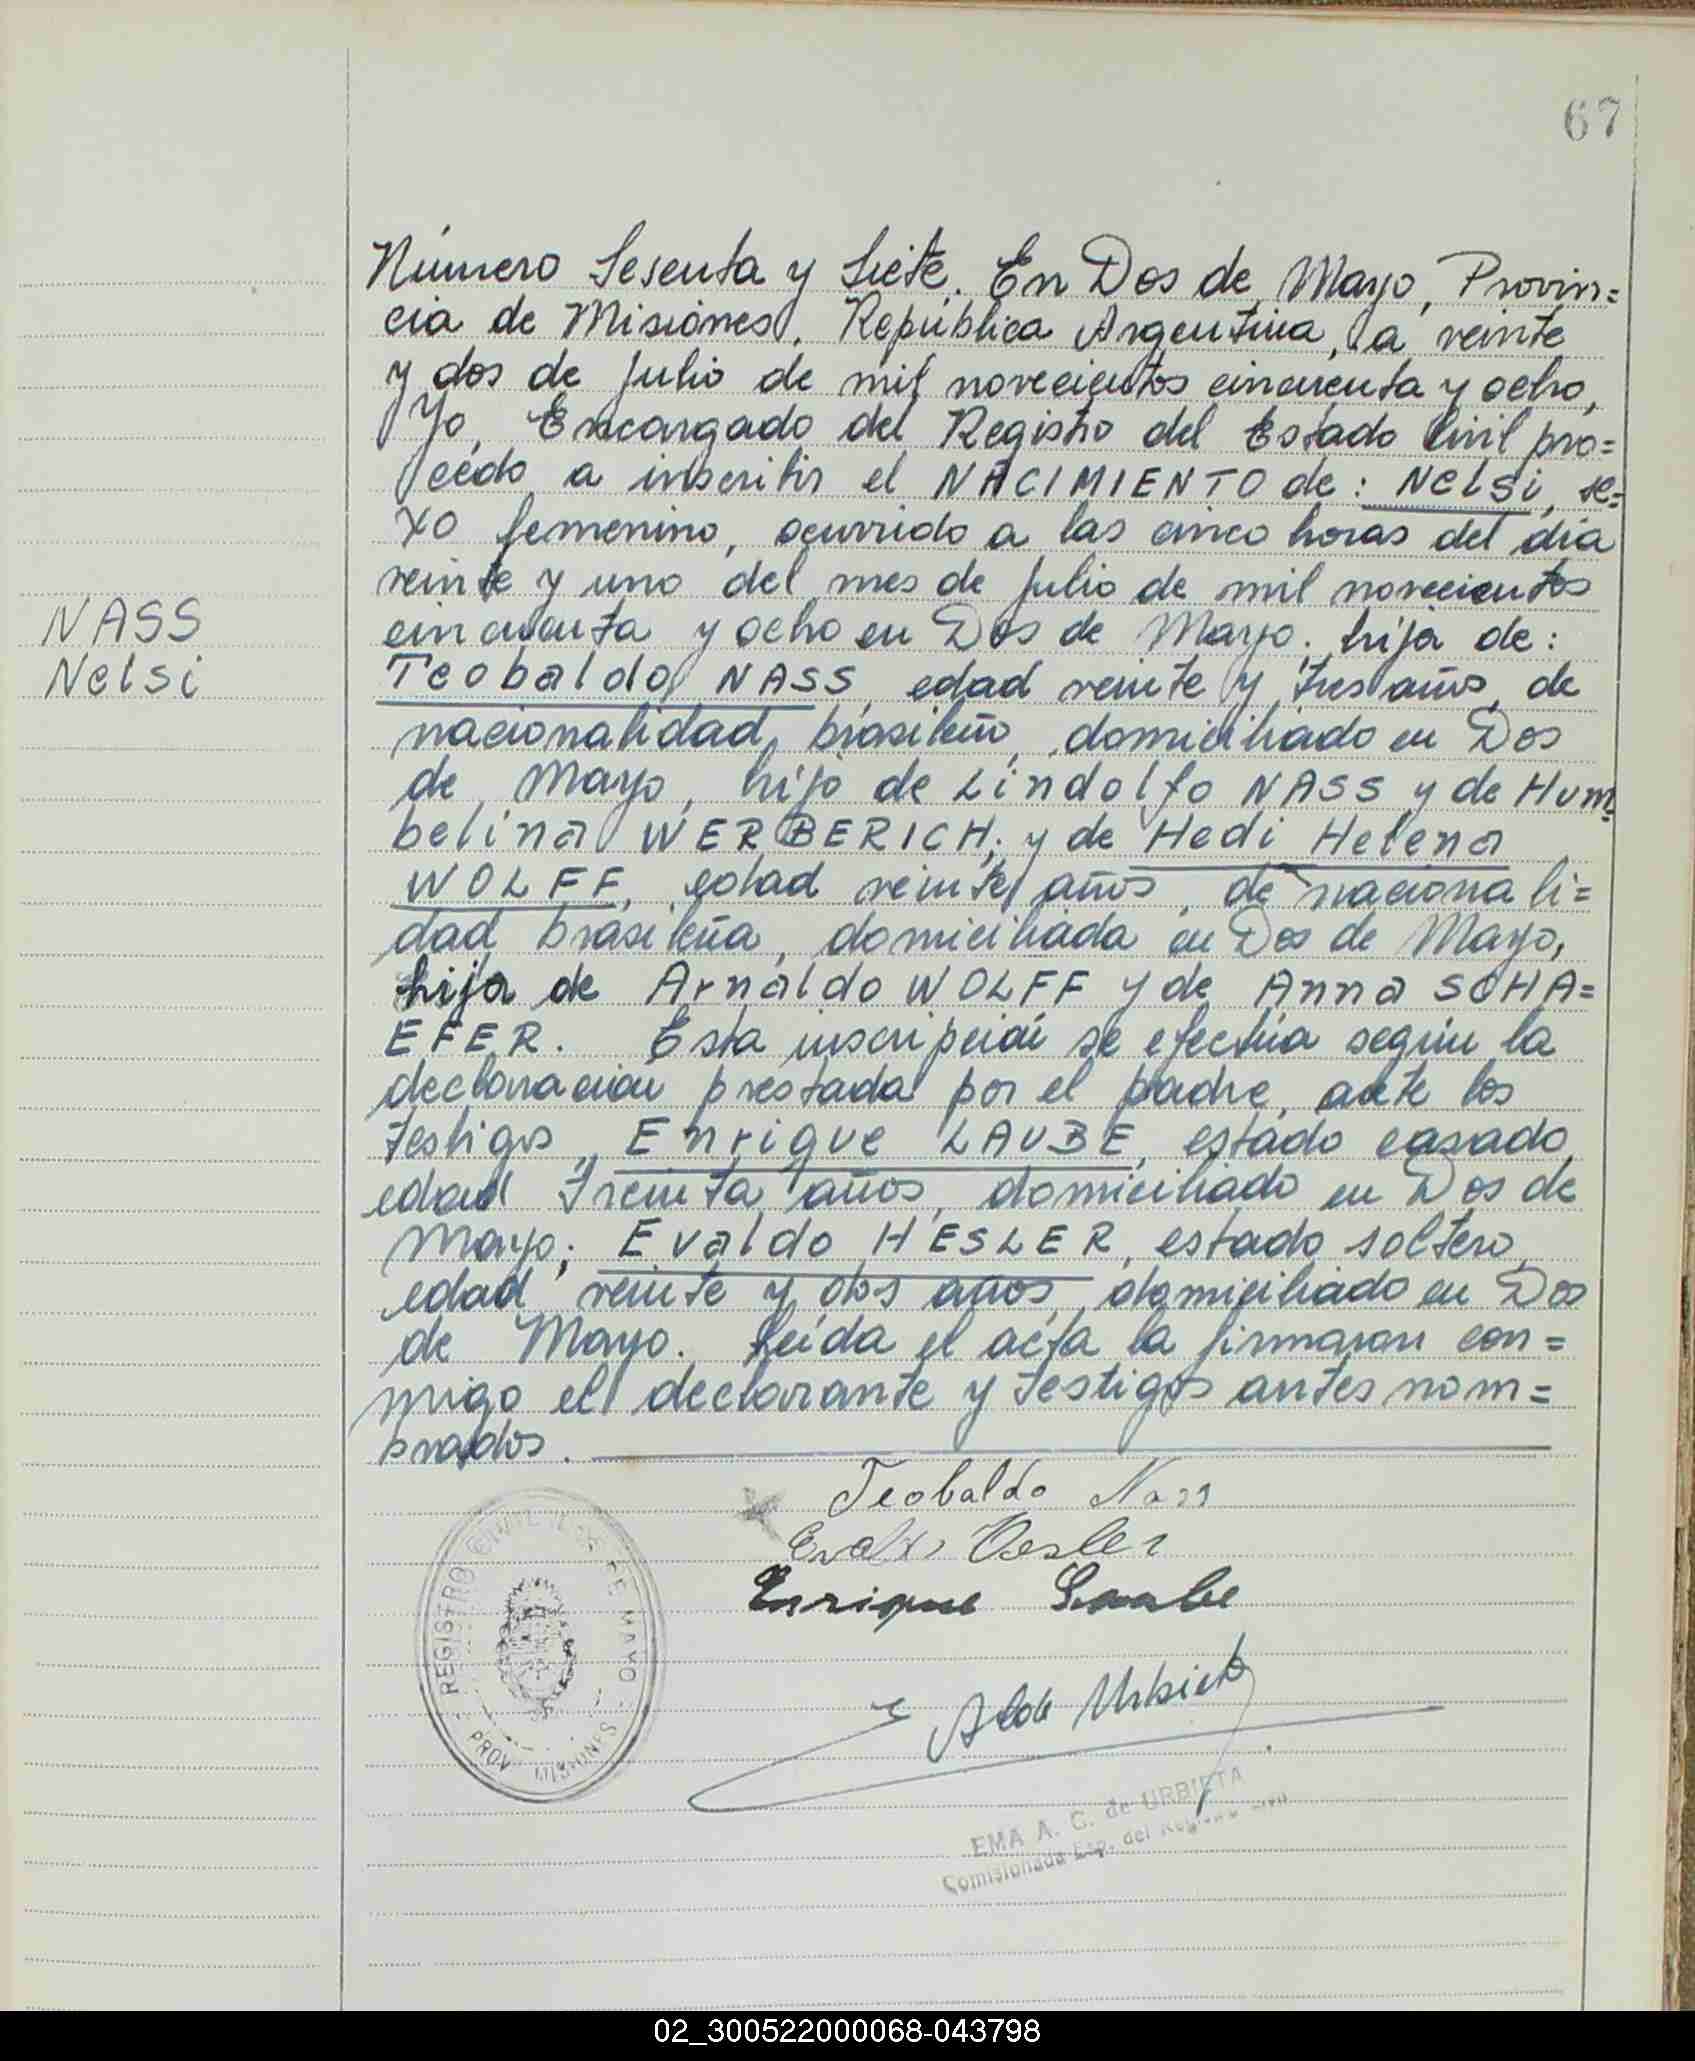 67
Número Sesenta y Siete. En Dos de Mayo, Provin=
cia de Misiones, República Argentina, a veinte
y dos de Julio de mil novecientos cincuenta y ocho,
Yo, Encargado del Registro del Estado Civil pro=
cedo a inscribir el NACIMIENTO de: Nelsi, se=
xo femenino, ocurrido a las cinco horas del día
veinte y uno del mes de Julio de mil novecientos
cincuenta y ocho en Dos de Mayo. hija de:
NASS
Nelsi
Teobaldo NASS, edad veinte y tres años, de
nacionalidad brasileño, domiciliado en Dos
de Mayo, hijo de Lindolfo NASS y de Hum=
belina WERBERICH; y de Hedi Helena
WOLFF, edad veinte años, de nacionali=
dad brasileña, domiciliada en Dos de Mayo,
hija de Arnaldo WOLFF y de Anna SCHA=
EFER. Esta inscripción se efectúa según la
declaración prestada por el padre, ante los
testigos, Enrique LAUBE, estado casado,
edad treinta años, domiciliado en Dos de
Mayo; Evaldo HESLER, estado soltero,
edad veinte y dos años, domiciliado en Dos
de Mayo. Leída el acta la firmaron con=
migo el declarante y testigos antes nom=
brados.
Teobaldo Nass
Enrique Laube
REGISTRO CIVIL DOS DE MAYO
PROV. MISIONES
EMA A. C. de URBIETA
Comisionada Esp. del Registro Civil
02_300522000068-043798